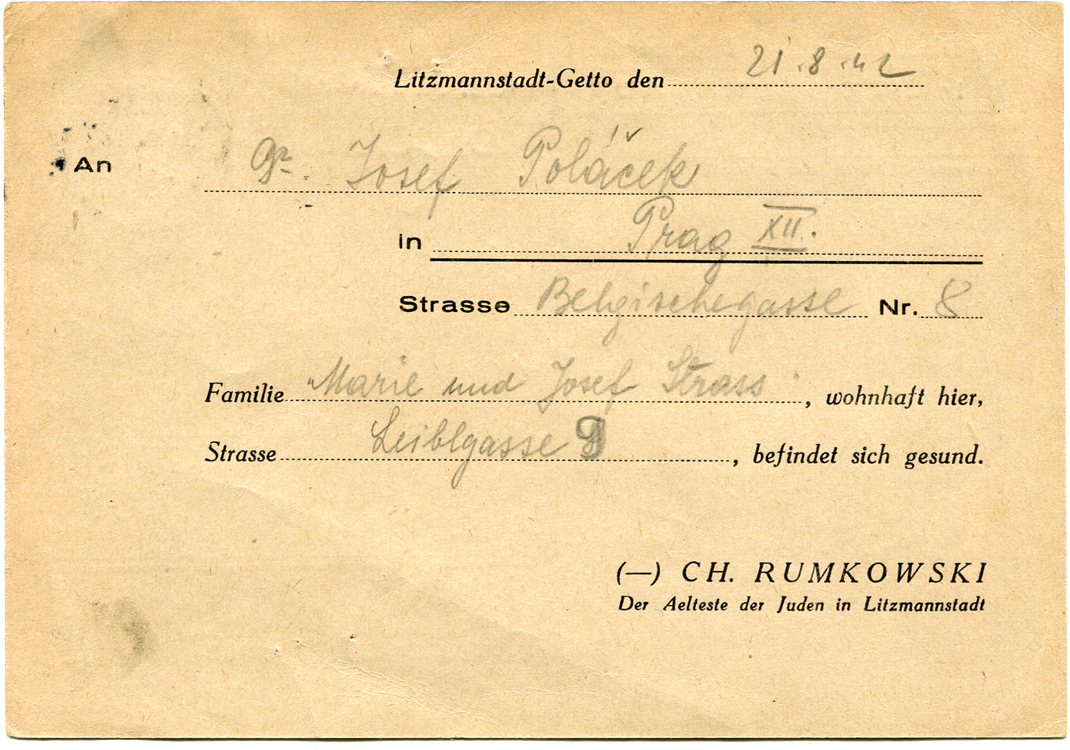 Litzmannstadt-Getto den 21.8.42
An Josef Poláček
in Prag XII.
Strasse Belgischegasse Nr. 8
Familie Marie und Josef Strass, wohnhaft hier,
Strasse Leiblgasse 9, befindet sich gesund.
(—) CH. RUMKOWSKI
Der Aelteste der Juden in Litzmannstadt